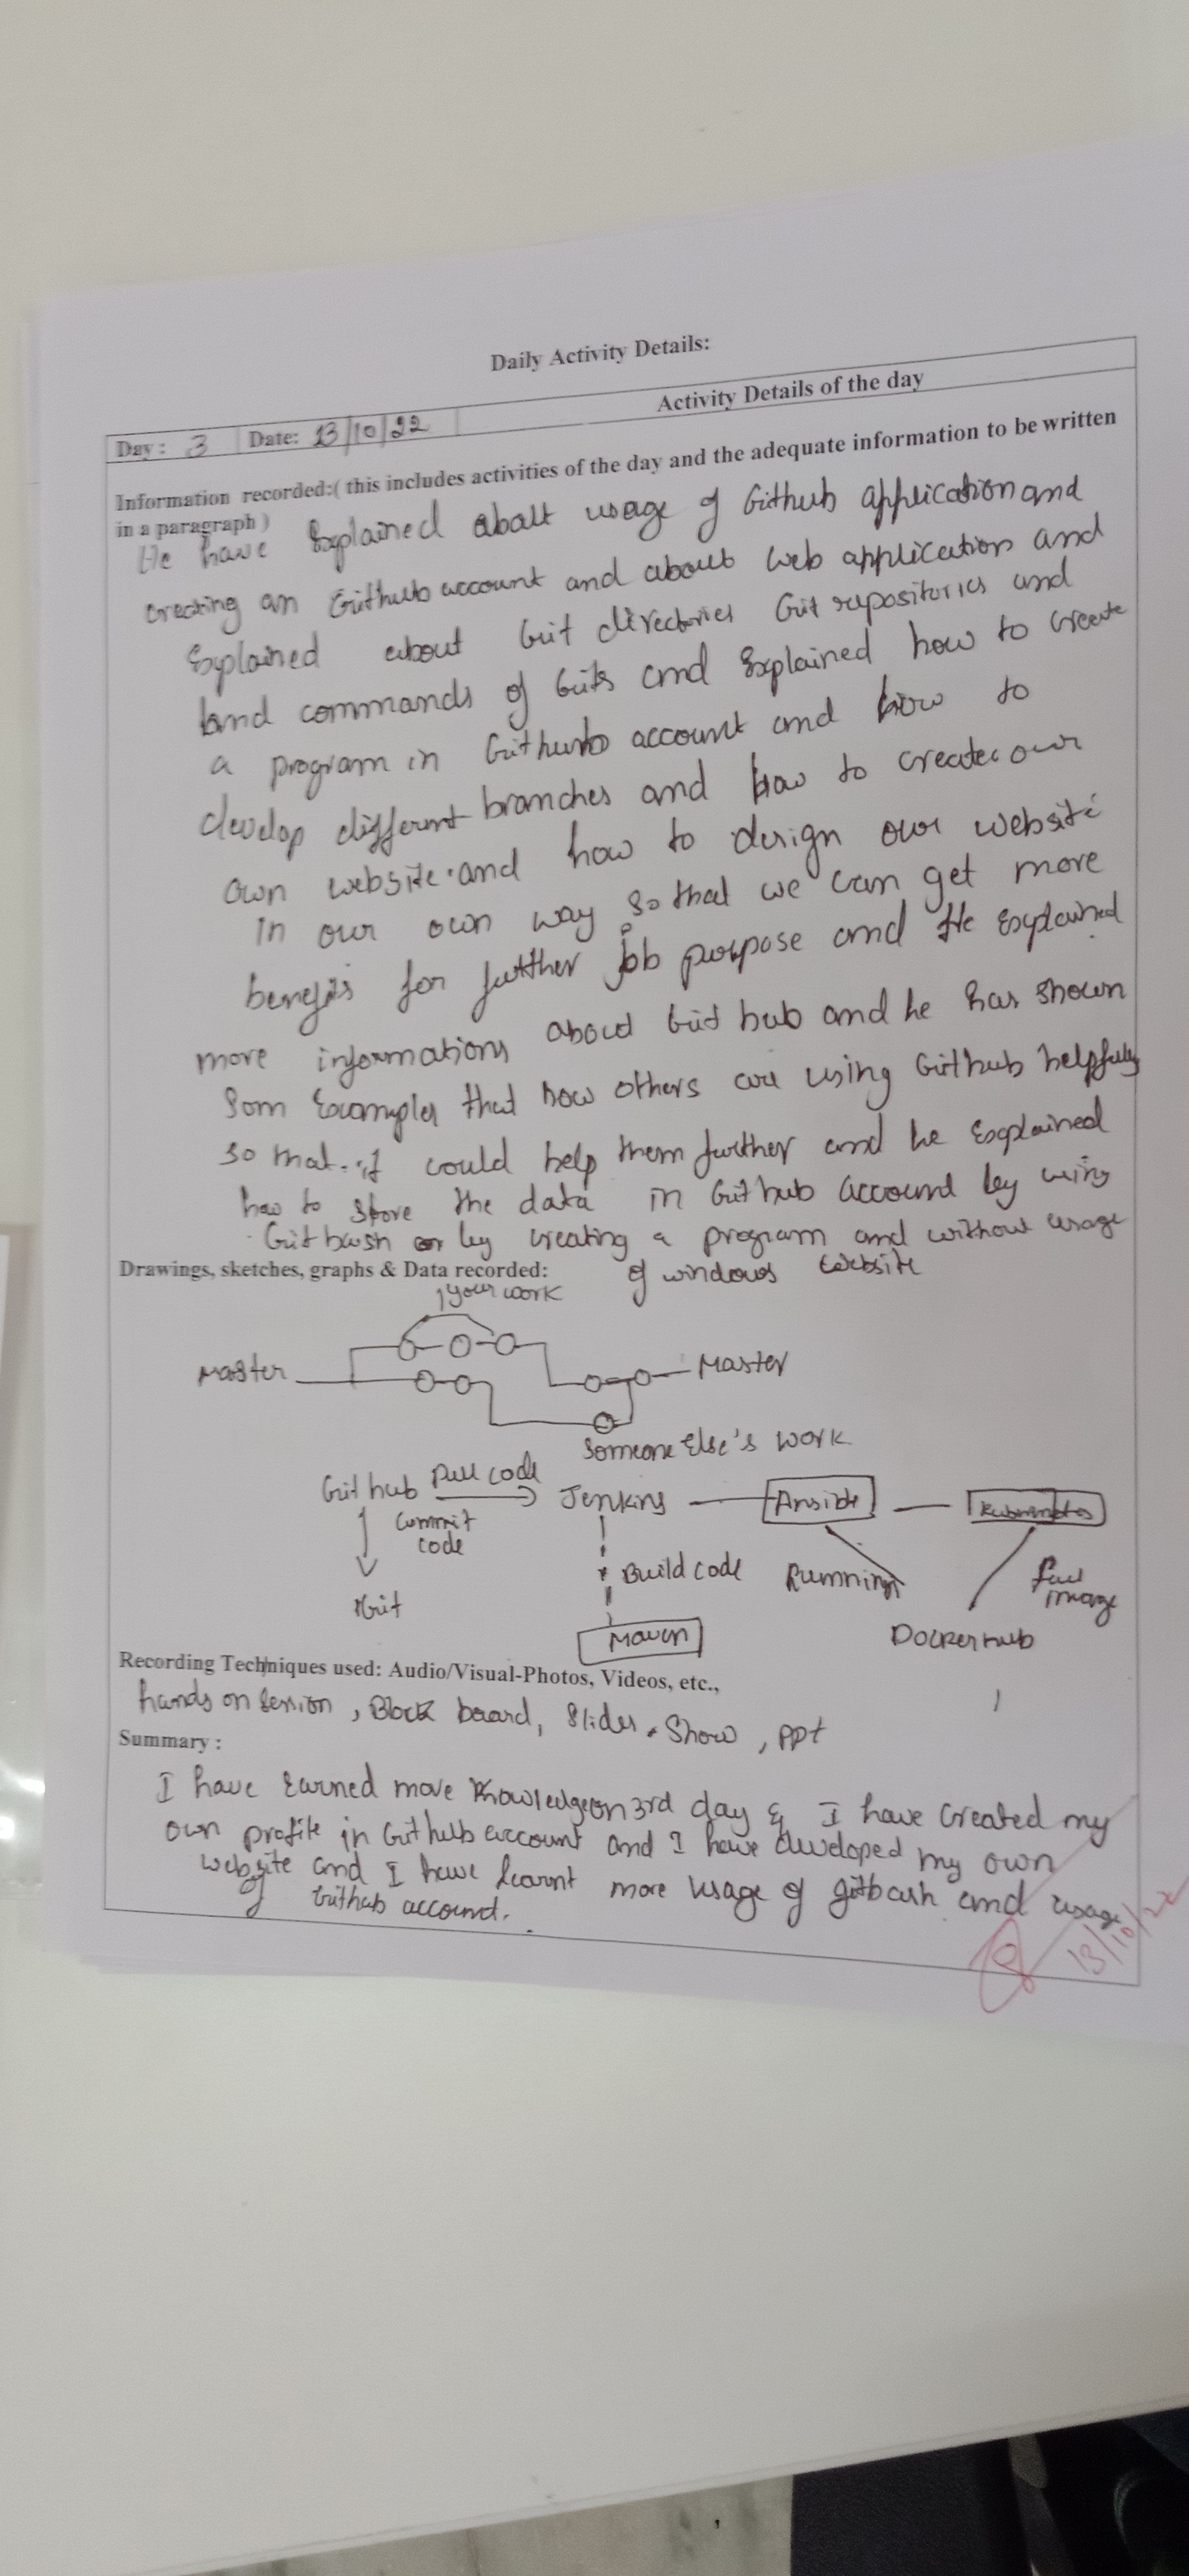 Daily Activity Details:
Day : 3 Date: 13/10/22 Activity Details of the day
Information recorded:( this includes activities of the day and the adequate information to be written
in a paragraph )
He have Explained abalt usage of Github application and
creating an Github account and about web application and
Explained about Git directories Git repositories and
and commands of Gits and Explained how to create
a program in Github account and how to
develop different branches and how to create our
own website. and how to design our website
in our own way so that we can get more
benefits for further job purpose and He explained
more informations about Git hub and he has shown
Som Examples that how others are using Github helpfully
so that. it could help them further and he Explained
how to store the data in Github account by using
Git bash or by creating a program and without usage
of windows website
Drawings, sketches, graphs & Data recorded:
your work
Master Master
Someone Else's work
Git hub Pull code Jenkins Ansible Kubernetes
Commit
code
Build code Running Pull
image
Git
Maven Docker hub
Recording Techniques used: Audio/Visual-Photos, Videos, etc.,
hands on session , Block board, Slides. Show , ppt
Summary :
I have Earned more Knowledge on 3rd day & I have Created my
own profile in Github account and I have developed my own
website and I have learnt more usage of gitbash and usage
of Github account.
13/10/22